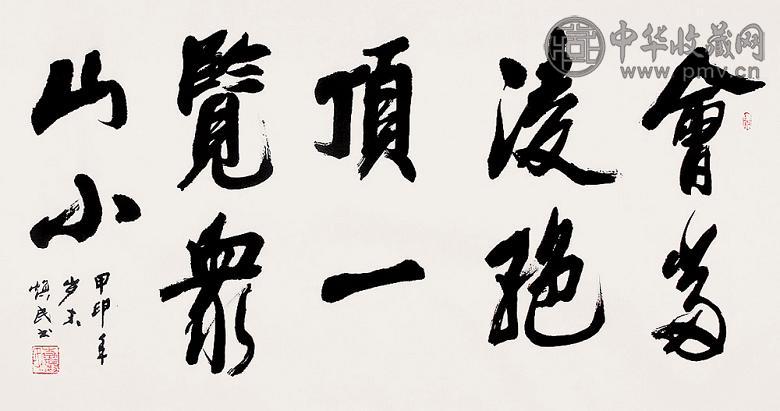 中华收藏网
www.pmv.cn
會當
淩絶
頂一
覽衆
山小
甲申年
岁末
慎民书